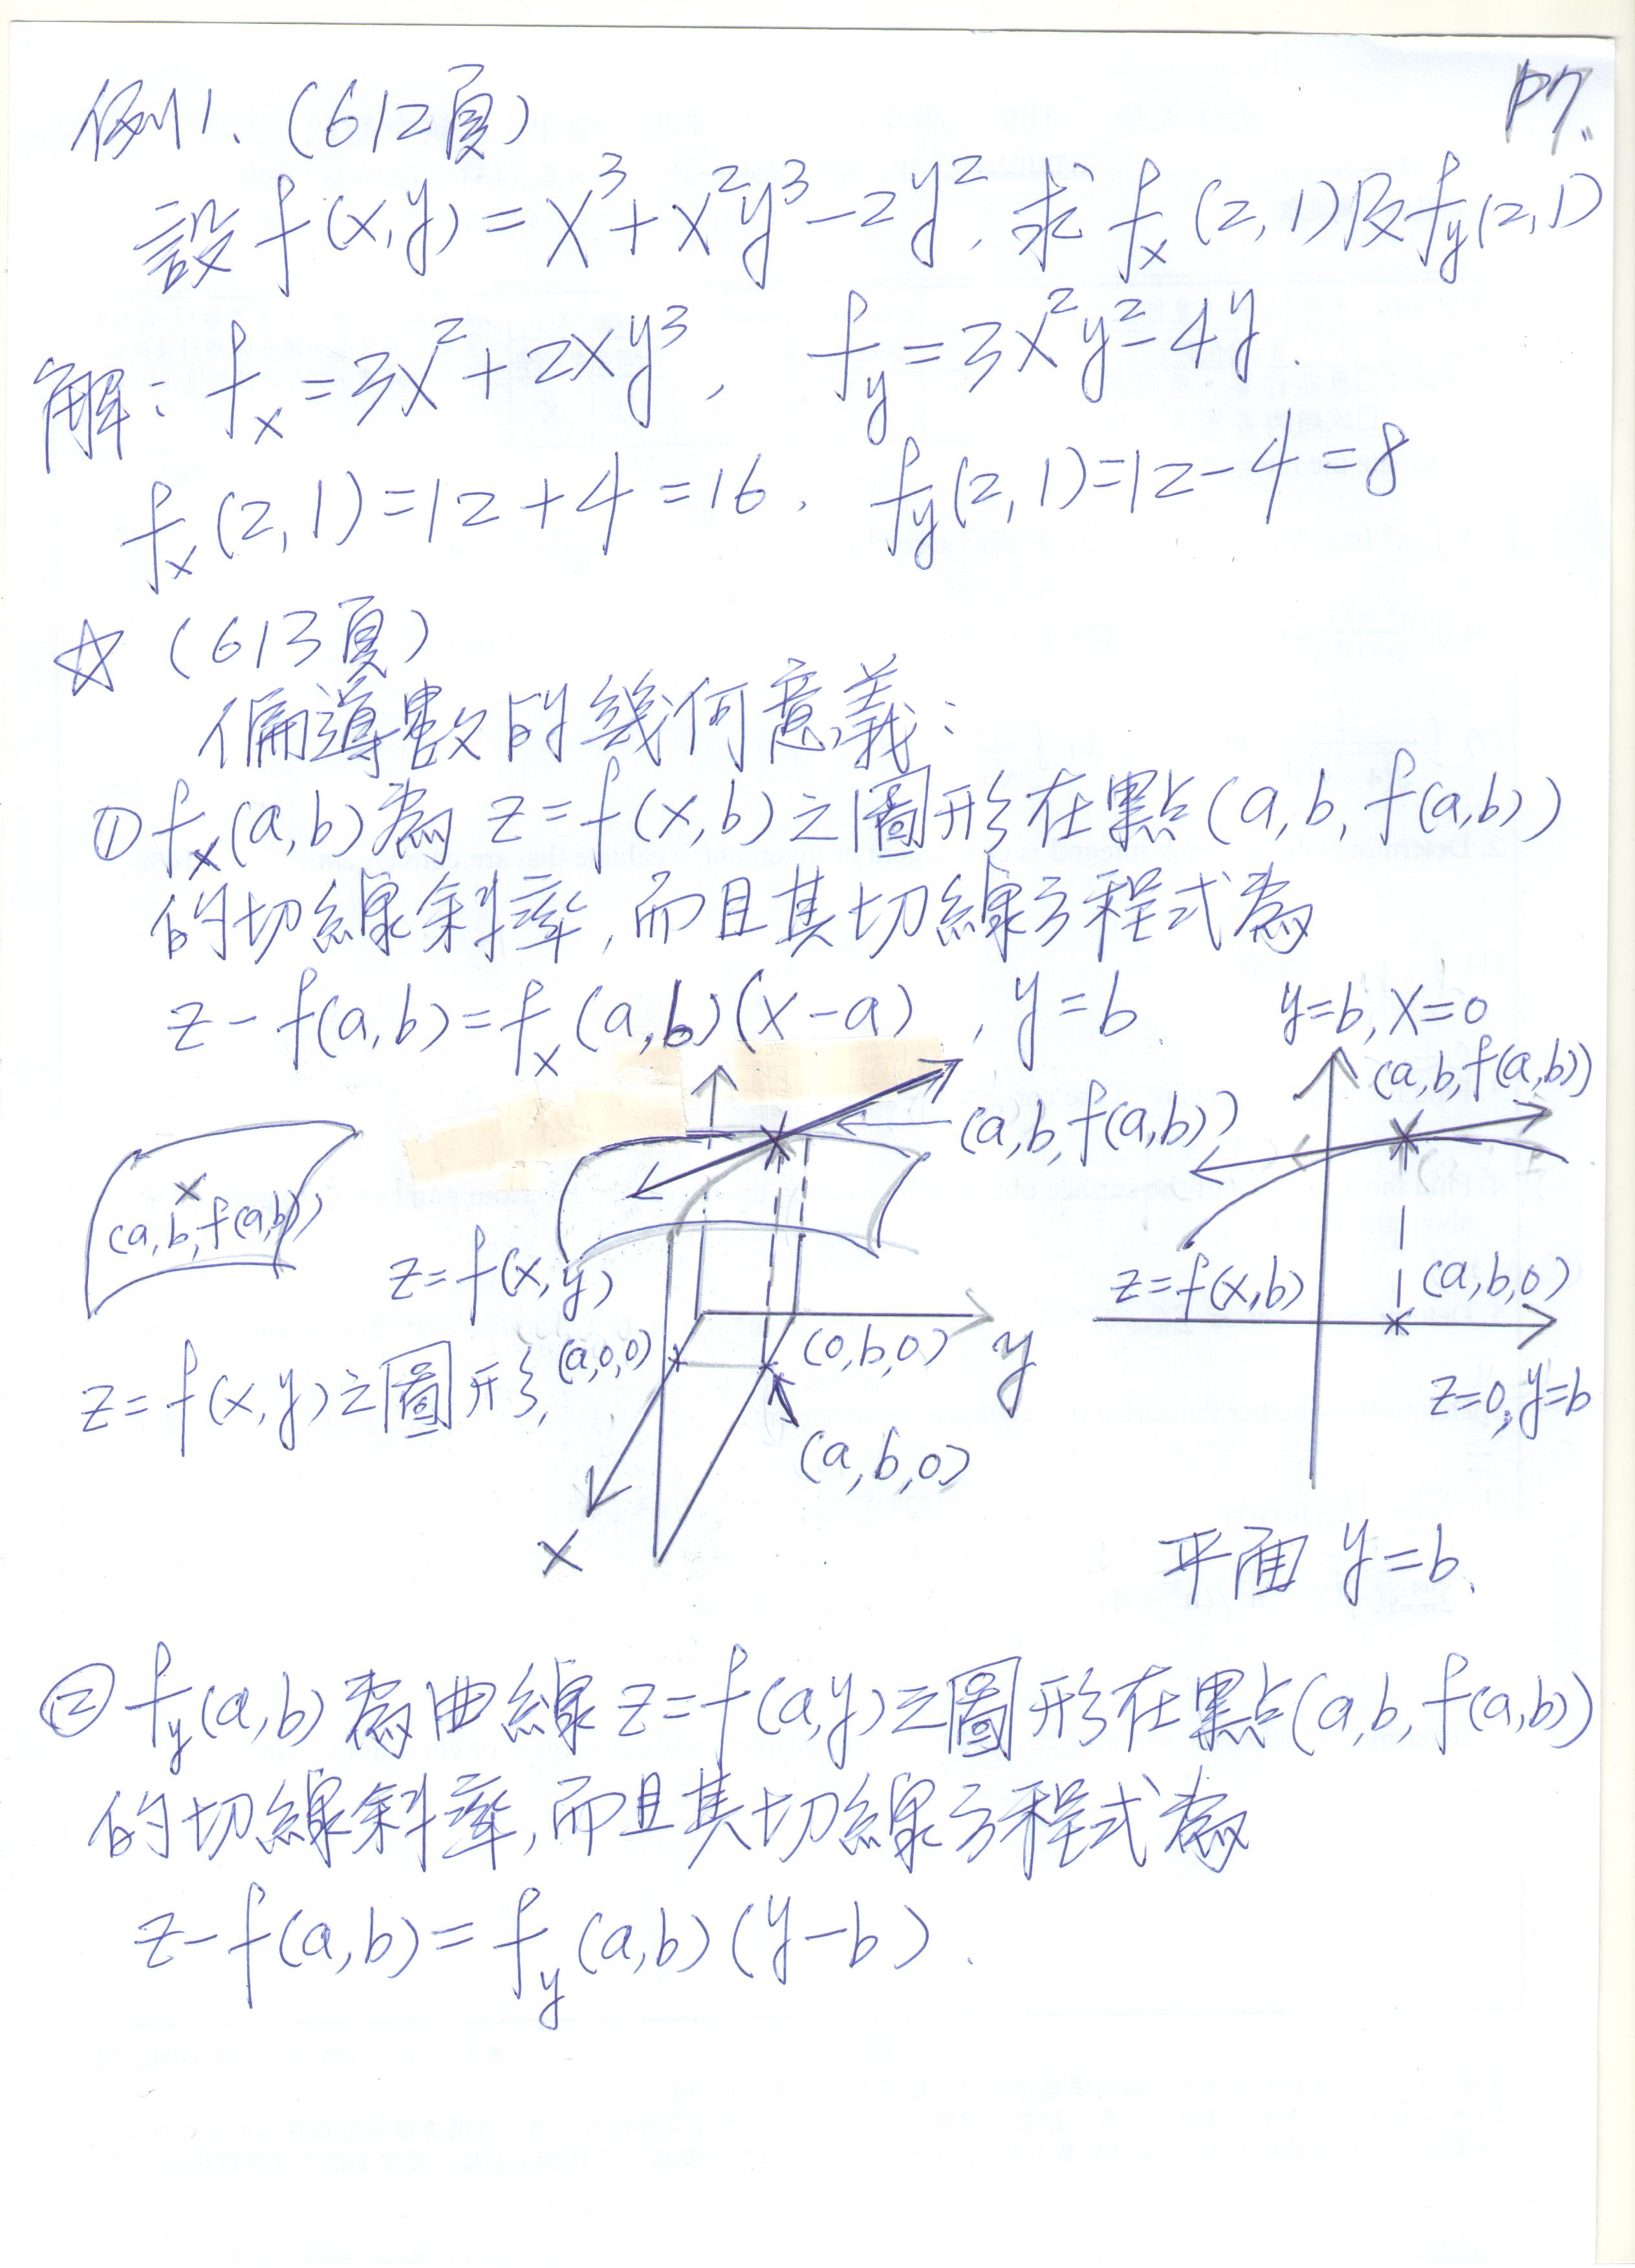 P7.
例1. (612頁)
設 f(x,y) = x³ + x²y³ - 2y², 求 fₓ(2,1) 及 f_y(2,1)
解: fₓ = 3x² + 2xy³, f_y = 3x²y² - 4y.
fₓ(2,1) = 12 + 4 = 16, f_y(2,1) = 12 - 4 = 8
☆ (613頁)
偏導數的幾何意義:
① fₓ(a,b) 為 z = f(x,b) 之圖形在點 (a,b,f(a,b))
的切線斜率, 而且其切線方程式為
z - f(a,b) = fₓ(a,b)(x-a), y = b.
y=b, x=0
(a,b,f(a,b))
(a,b,f(a,b))
(a,b,f(a,b))
z = f(x,y)
z = f(x,b)
(a,b,0)
(a,0,0)
(0,b,0)
y
z = f(x,y) 之圖形,
z=0, y=b
(a,b,0)
x
平面 y=b.
② f_y(a,b) 為曲線 z = f(a,y) 之圖形在點 (a,b,f(a,b))
的切線斜率, 而且其切線方程式為
z - f(a,b) = f_y(a,b)(y-b).